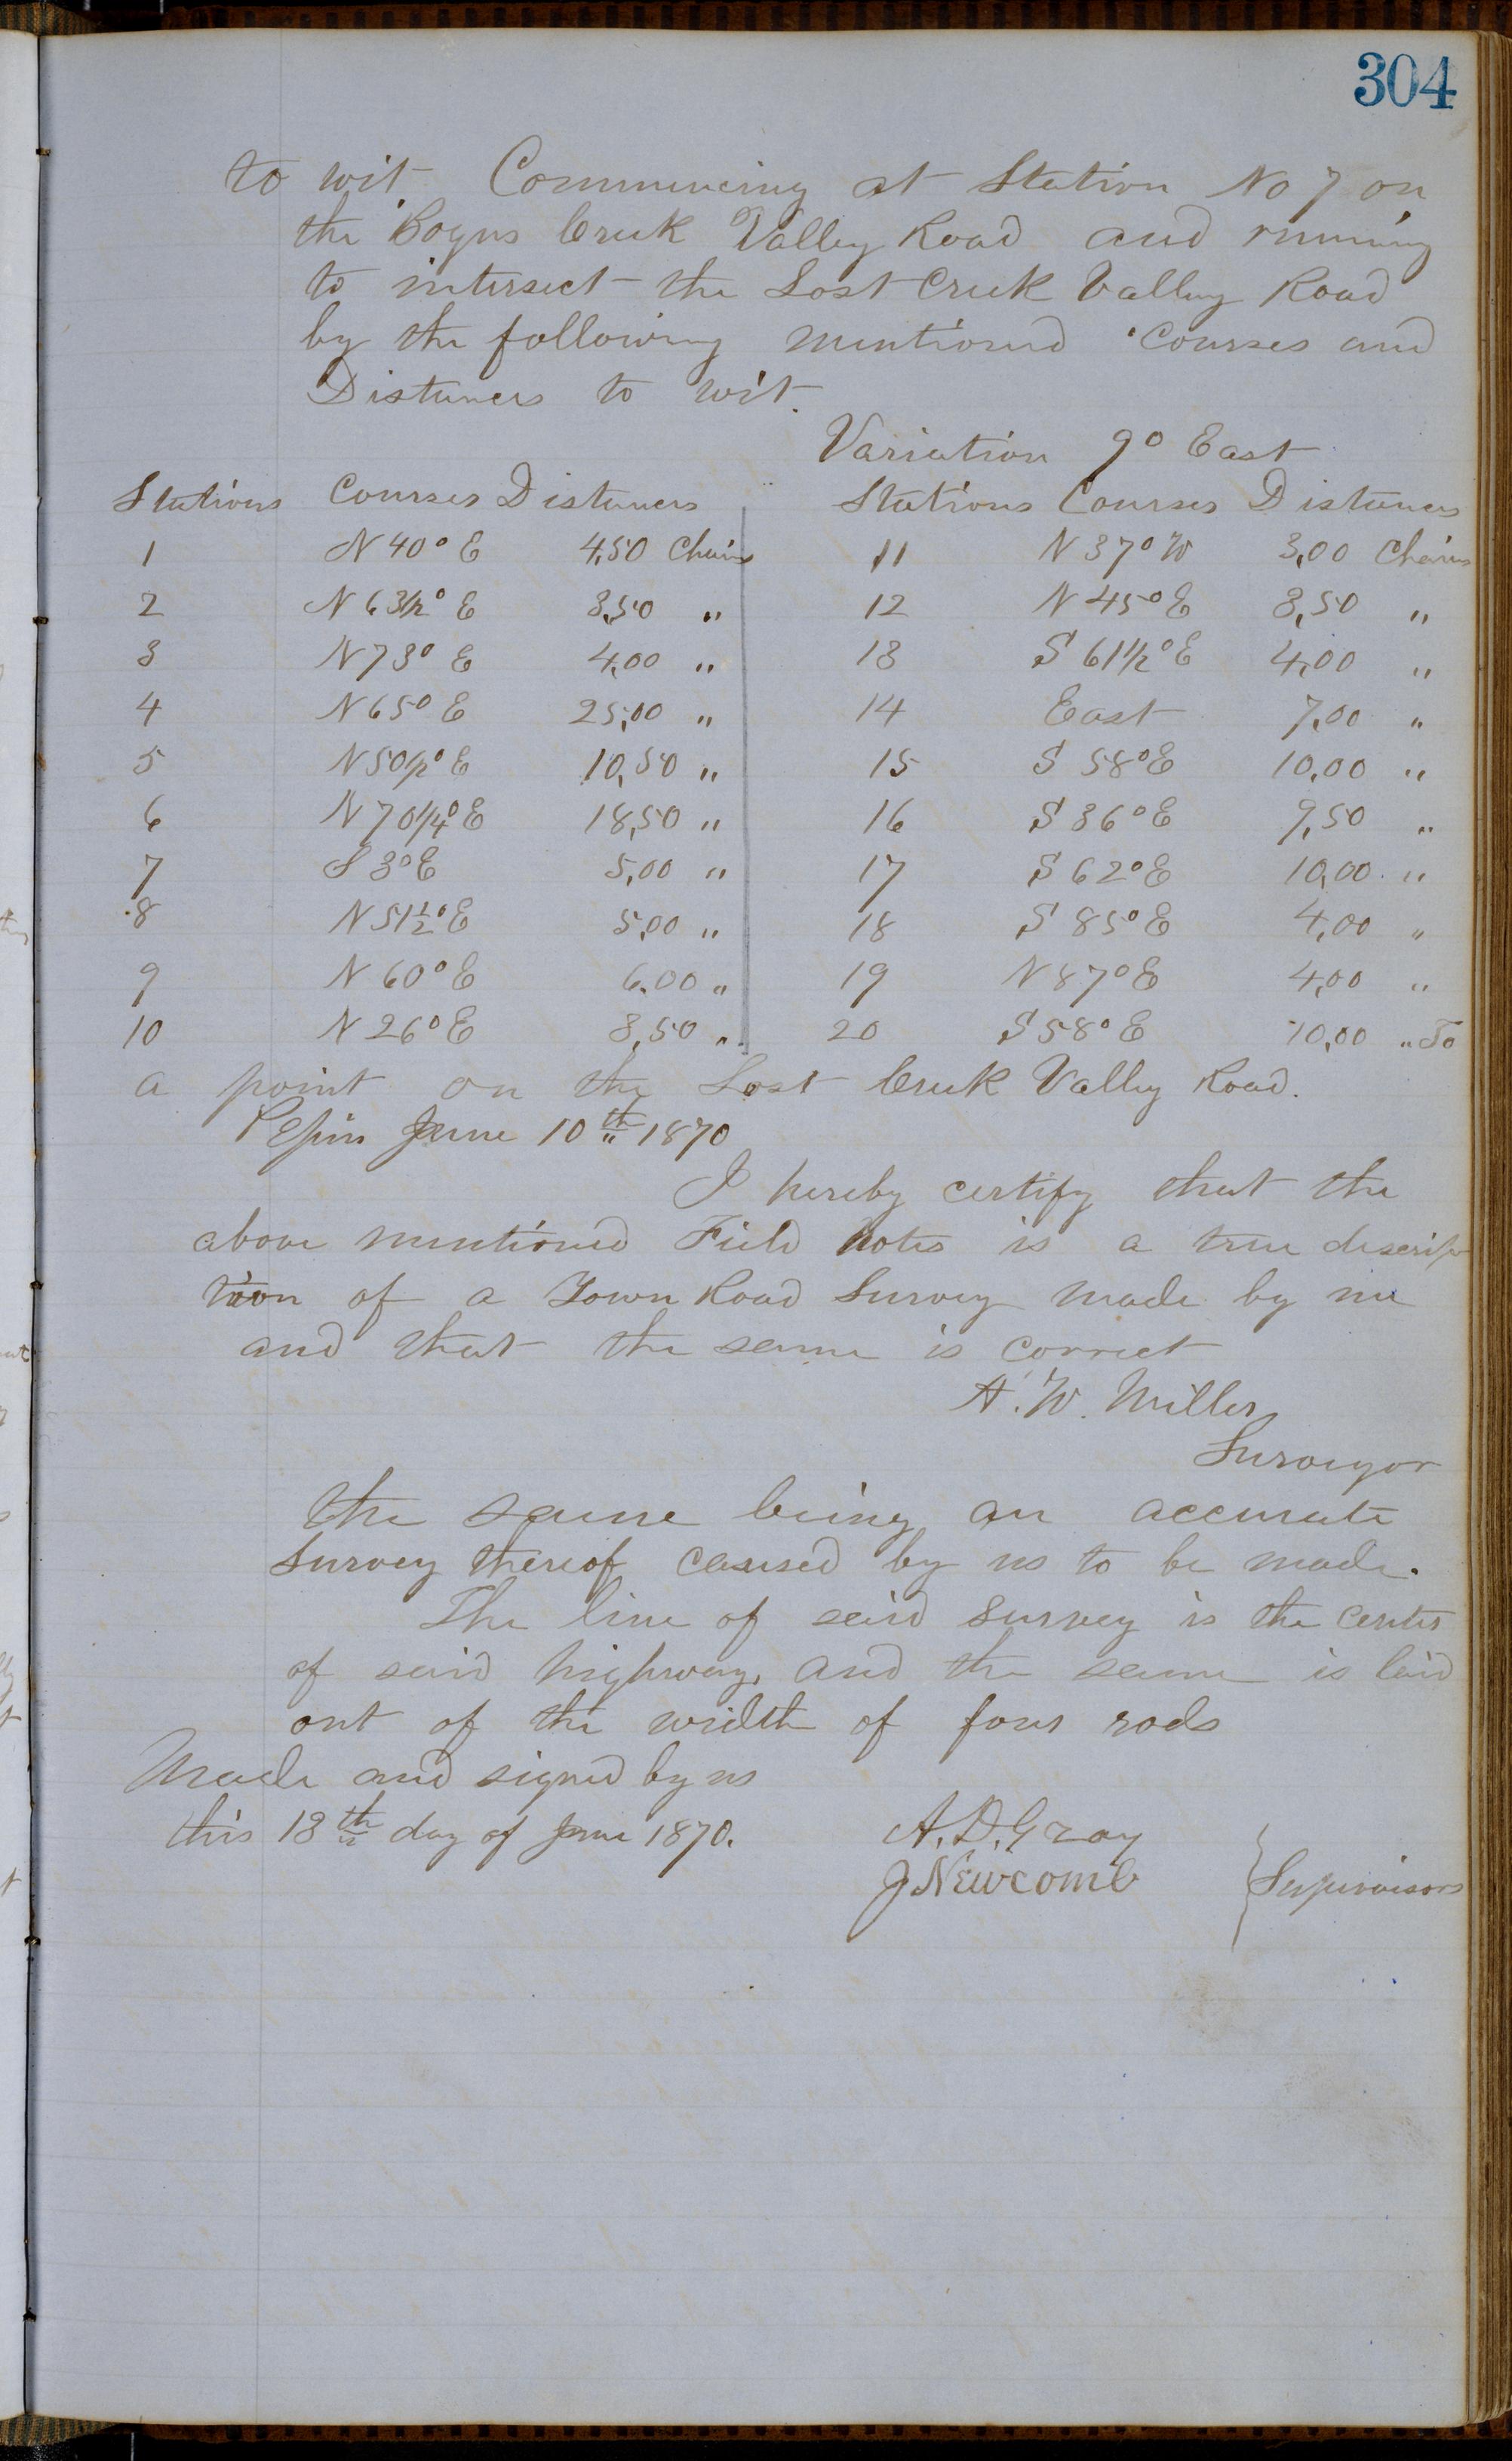 304
to wit. Commencing at Station No 7 on
the Bogus Creek Valley Road and running
to intersect the Lost Creek Valley Road
by the following mentioned Courses and
Distances to wit.
Variation 9° East
Stations Courses Distances Stations Courses Distances
1 N 40° E 4,50 Chains 11 N 37° W 3,00 Chains
2 N 63 1/2° E 3,50 " 12 N 45° E 3,50 "
3 N 73° E 4,00 " 13 S 61 1/2° E 4,00 "
4 N 65° E 25,00 " 14 East 7,00 "
5 N 50 1/2° E 10,50 " 15 S 58° E 10,00 "
6 N 70 1/4° E 18,50 " 16 S 36° E 9,50 "
7 S 3° E 5,00 " 17 S 62° E 10,00 "
8 N 51 1/2° E 5,00 " 18 S 85° E 4,00 "
9 N 60° E 6.00 " 19 N 87° E 4,00 "
10 N 26° E 3,50 " 20 S 58° E 10,00 " To
a point on the Lost Creek Valley Road.
Pepin June 10th 1870
I hereby certify that the
above mentioned Field Notes is a true descrip
tion of a Town Road Survey made by me
and that the same is correct
A. W. Miller
Surveyor
the same being an accurate
Survey thereof caused by us to be made.
The line of said survey is the center
of said highway, and the same is laid
out of the width of four rods
Made and signed by us
this 13th day of June 1870. A. D. Gray
J Newcomb } Supervisors